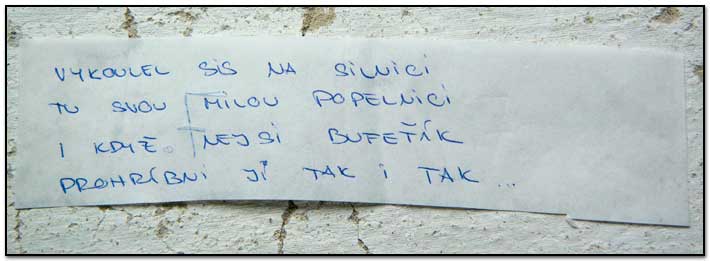 VYKOULEL SIS NA SILNICI
TU SVOU MILOU POPELNICI
I KDYŽ NEJSI BUFEŤÁK
PROHRÍBNI JÍ TAK I TAK ...